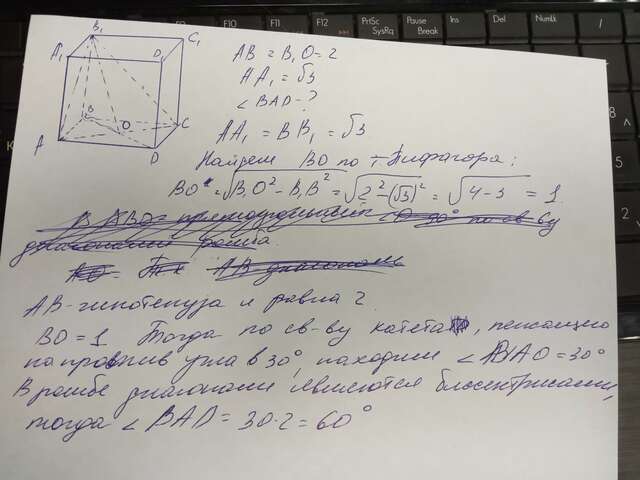 F9 F10 F11 F12 PrtSc SysRq Pause Break Ins Del NumLk /
B₁ C₁
A₁ D₁
B
O C
A D
AB = B₁O = 2
AA₁ = √3
∠BAD - ?
AA₁ = BB₁ = √3
Найдем BO по т. Пифагора:
BO = √B₁O² - B₁B² = √2² - (√3)² = √4 - 3 = 1
AB - гипотенуза и равна 2.
BO = 1 Тогда по св-ву катета, лежащего
напротив угла в 30°, находим ∠BAO = 30°
В ромбе диагонали являются биссектрисами,
тогда ∠BAD = 30·2 = 60°